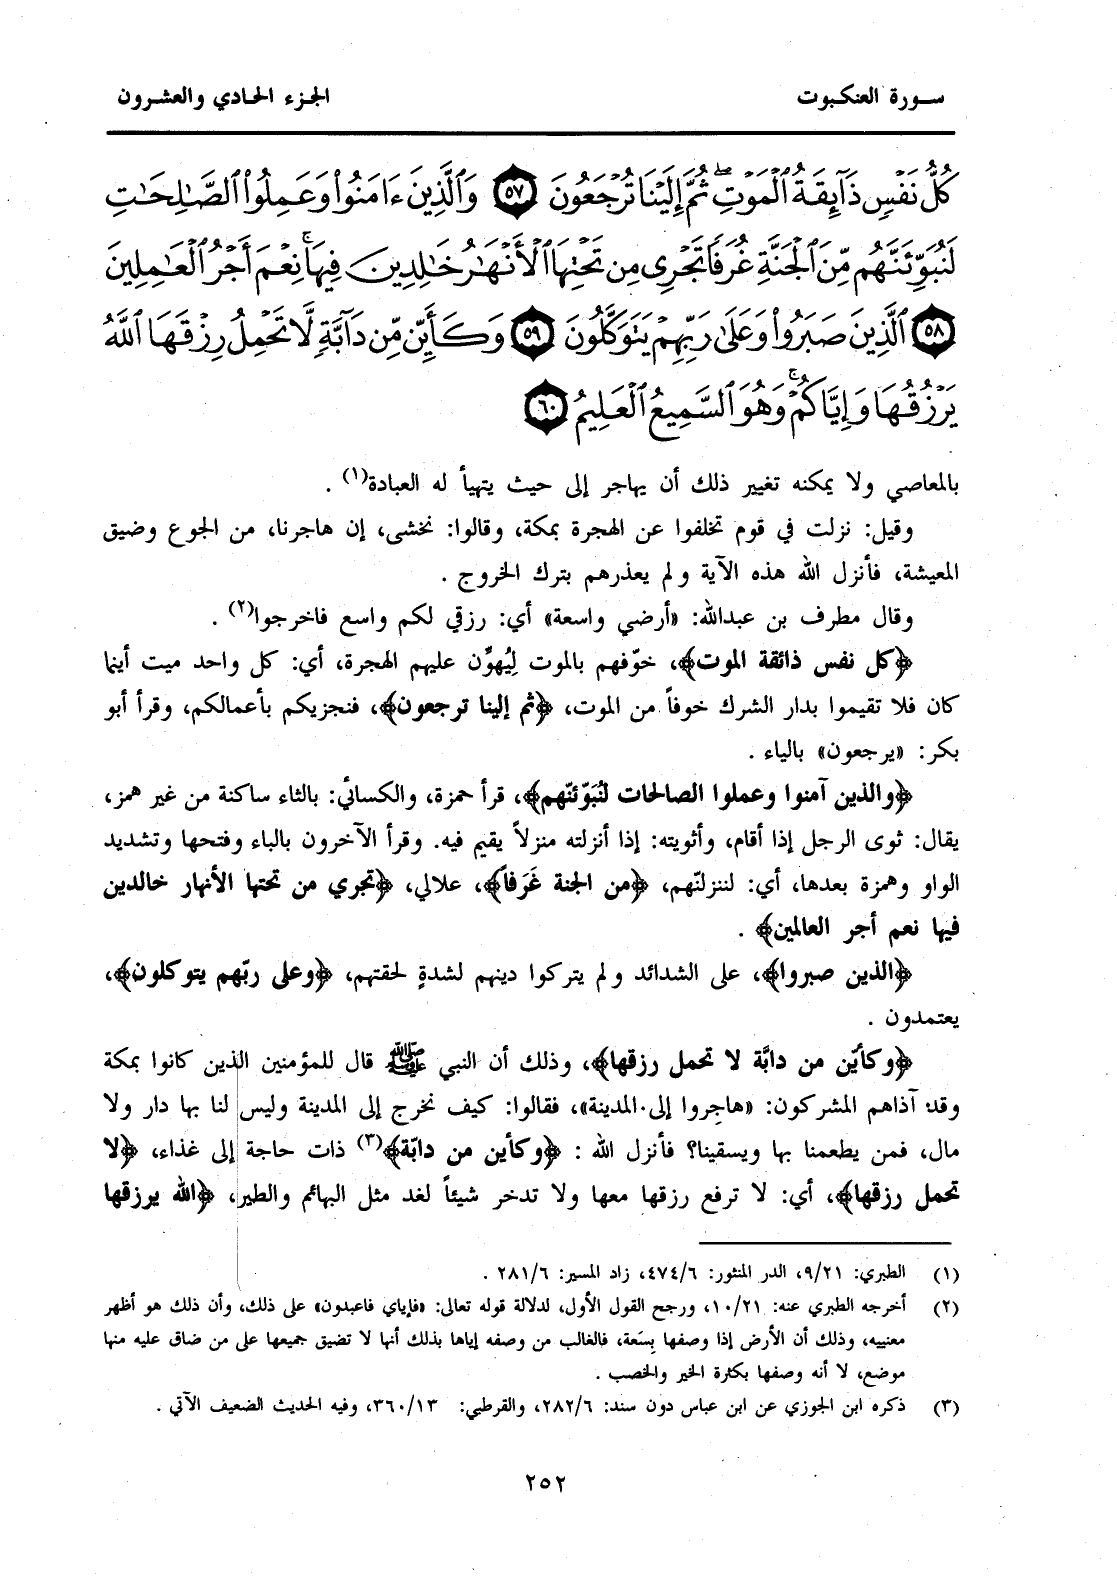 سورة العنكبوت
الجزء الحادي والعشرون
كُلُّ نَفْسٍ ذَآئِقَةُ ٱلْمَوْتِ ۖ ثُمَّ إِلَيْنَا تُرْجَعُونَ ﴿٥٧﴾ وَٱلَّذِينَ ءَامَنُوا۟ وَعَمِلُوا۟ ٱلصَّـٰلِحَـٰتِ
لَنُبَوِّئَنَّهُم مِّنَ ٱلْجَنَّةِ غُرَفًا تَجْرِى مِن تَحْتِهَا ٱلْأَنْهَـٰرُ خَـٰلِدِينَ فِيهَا ۚ نِعْمَ أَجْرُ ٱلْعَـٰمِلِينَ
﴿٥٨﴾ ٱلَّذِينَ صَبَرُوا۟ وَعَلَىٰ رَبِّهِمْ يَتَوَكَّلُونَ ﴿٥٩﴾ وَكَأَيِّن مِّن دَآبَّةٍ لَّا تَحْمِلُ رِزْقَهَا ٱللَّهُ
يَرْزُقُهَا وَإِيَّاكُمْ ۚ وَهُوَ ٱلسَّمِيعُ ٱلْعَلِيمُ ﴿٦٠﴾
بالمعاصي ولا يمكنه تغيير ذلك أن يهاجر إلى حيث يتهيأ له العبادة(١) .
وقيل: نزلت في قوم تخلفوا عن الهجرة بمكة، وقالوا: نخشى، إن هاجرنا، من الجوع وضيق
المعيشة، فأنزل الله هذه الآية ولم يعذرهم بترك الخروج .
وقال مطرف بن عبدالله: «أرضي واسعة» أي: رزقي لكم واسع فاخرجوا(٢) .
﴿كل نفس ذائقة الموت﴾، خوّفهم بالموت لِيُهوِّن عليهم الهجرة، أي: كل واحد ميت أينما
كان فلا تقيموا بدار الشرك خوفاً من الموت، ﴿ثم إلينا ترجعون﴾، فنجزيكم بأعمالكم، وقرأ أبو
بكر: «يرجعون» بالياء .
﴿والذين آمنوا وعملوا الصالحات لنُبَوّئنّهم﴾، قرأ حمزة، والكسائي: بالثاء ساكنة من غير همز،
يقال: ثوى الرجل إذا أقام، وأثويته: إذا أنزلته منزلاً يقيم فيه. وقرأ الآخرون بالباء وفتحها وتشديد
الواو وهمزة بعدها، أي: لننزلنّهم، ﴿من الجنة غَرَفاً﴾، علالي، ﴿تجري من تحتها الأنهار خالدين
فيها نعم أجر العالمين﴾ .
﴿الذين صبروا﴾، على الشدائد ولم يتركوا دينهم لشدةٍ لحقتهم، ﴿وعلى ربّهم يتوكلون﴾،
يعتمدون .
﴿وكأيّن من دابَّة لا تحمل رزقها﴾، وذلك أن النبي ﷺ قال للمؤمنين الذين كانوا بمكة
وقد آذاهم المشركون: «هاجِروا إلى المدينة»، فقالوا: كيف نخرج إلى المدينة وليس لنا بها دار ولا
مال، فمن يطعمنا بها ويسقينا؟ فأنزل الله : ﴿وكأين من دابّة﴾(٣) ذات حاجة إلى غذاء، ﴿لا
تحمل رزقها﴾، أي: لا ترفع رزقها معها ولا تدخر شيئاً لغد مثل البهائم والطير، ﴿الله يرزقها
(١) الطبري: ٩/٢١، الدر المنثور: ٤٧٤/٦، زاد المسير: ٢٨١/٦ .
(٢) أخرجه الطبري عنه: ١٠/٢١، ورجح القول الأول، لدلالة قوله تعالى: «فإياي فاعبدون» على ذلك، وأن ذلك هو أظهر
معنييه، وذلك أن الأرض إذا وصفها بِسَعة، فالغالب من وصفه إياها بذلك أنها لا تضيق جميعها على من ضاق عليه منها
موضع، لا أنه وصفها بكثرة الخير والخصب .
(٣) ذكره ابن الجوزي عن ابن عباس دون سند: ٢٨٢/٦، والقرطبي: ٣٦٠/١٣، وفيه الحديث الضعيف الآتي .
٢٥٢